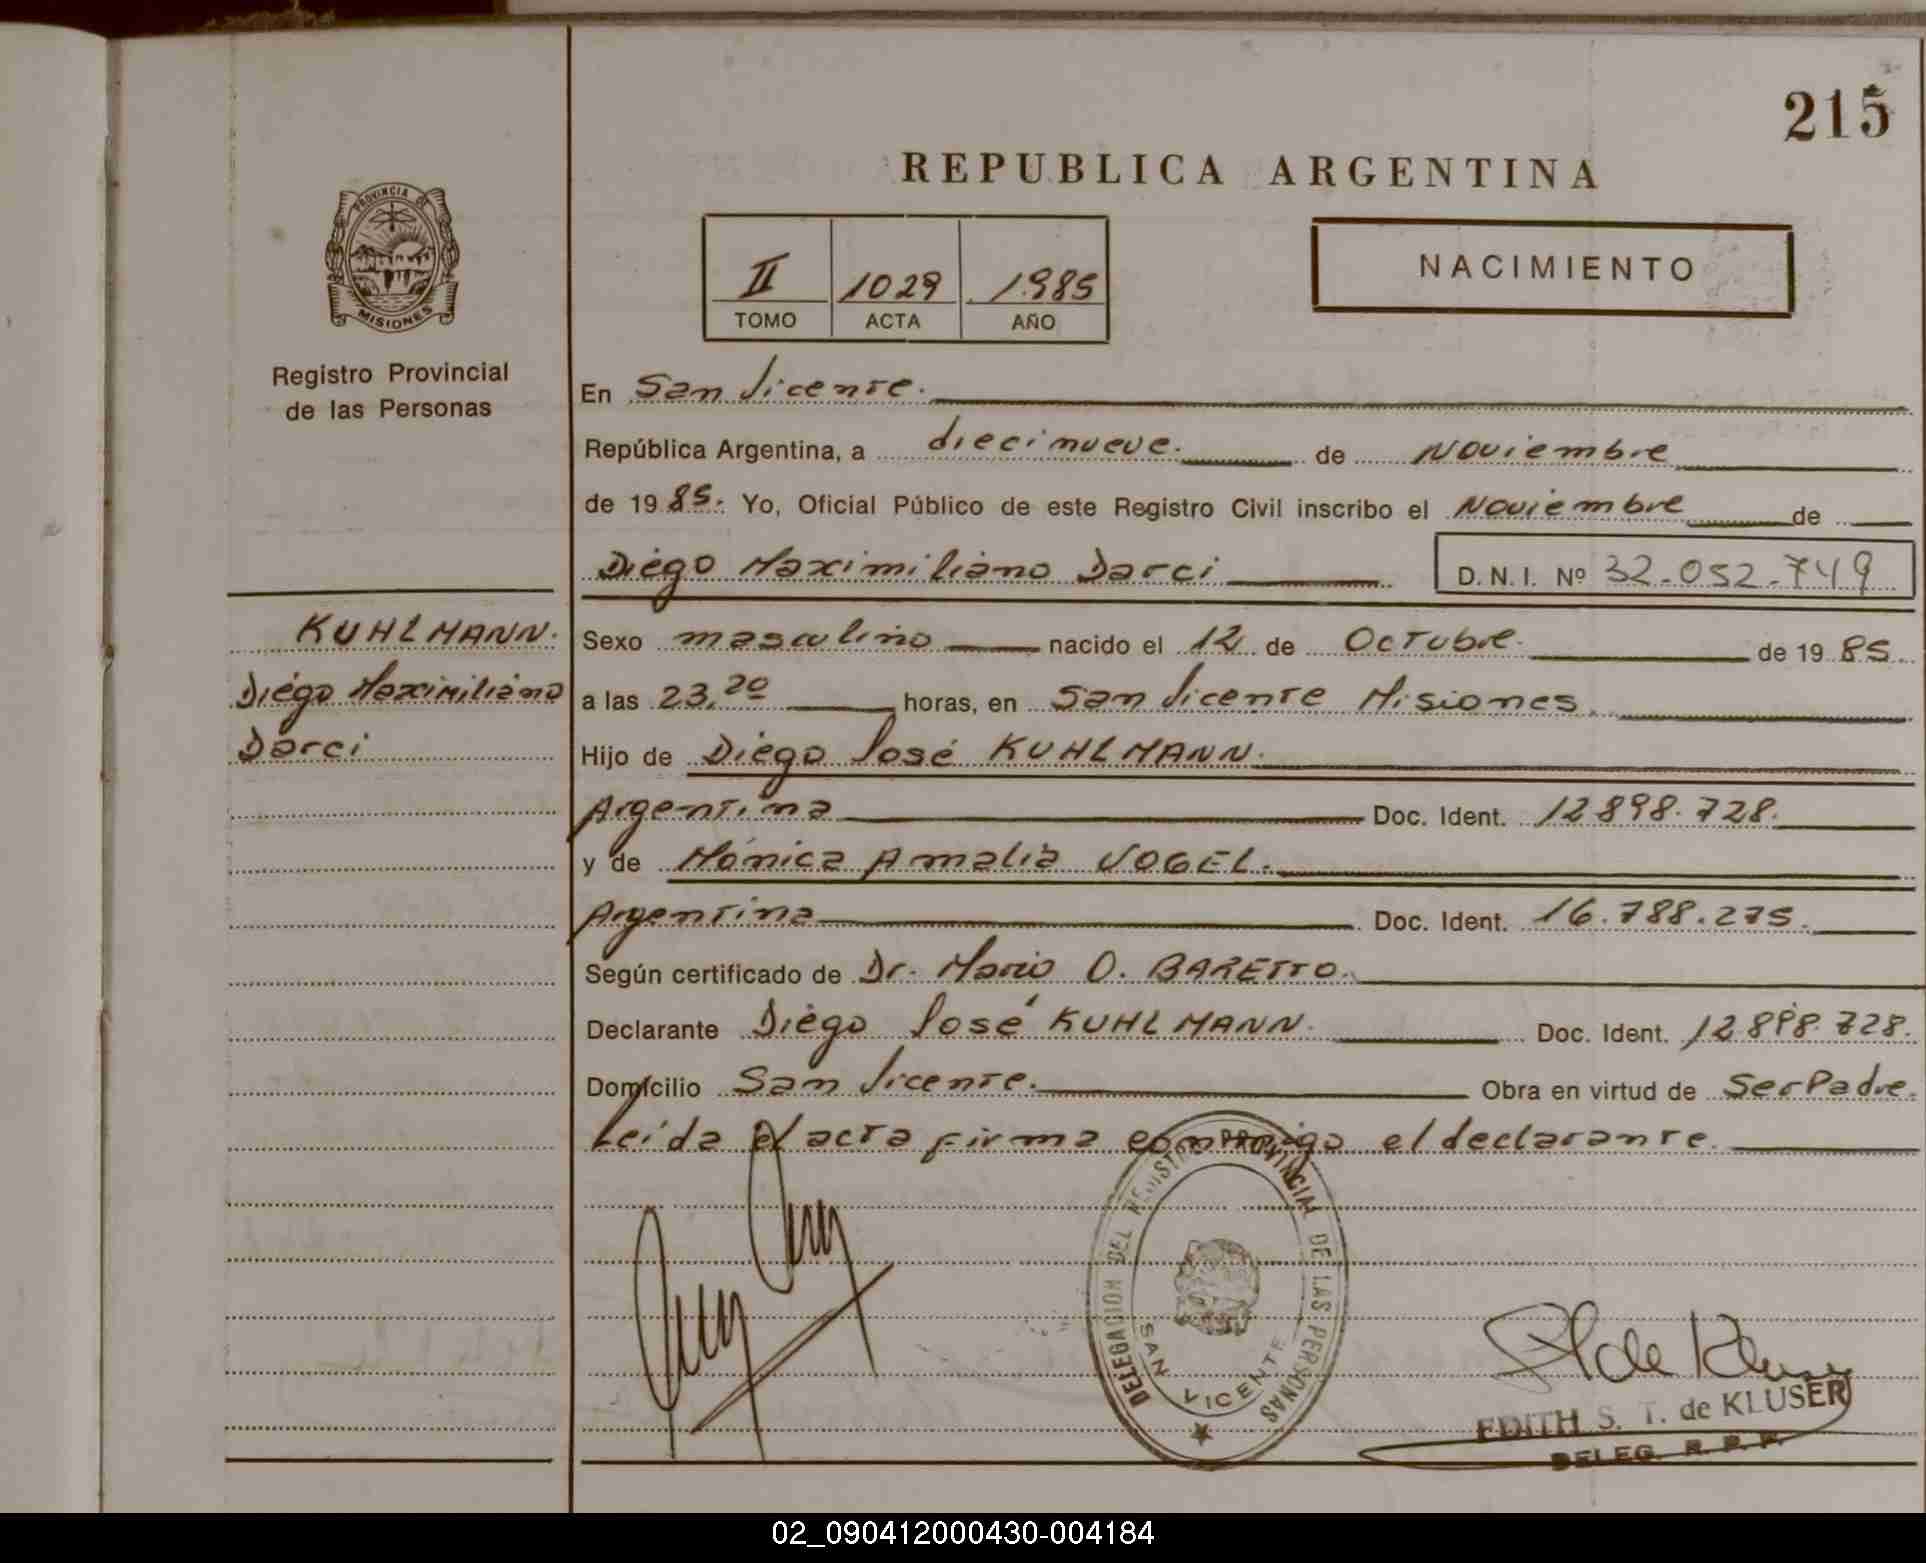 215
REPUBLICA ARGENTINA
II 1029 1985
TOMO ACTA AÑO
NACIMIENTO
PROVINCIA DE
MISIONES
Registro Provincial
de las Personas
KUHLMANN.
Diégo Maximiliano
Darci
En San Vicente.
República Argentina, a diecinueve. de Noviembre
de 1985. Yo, Oficial Público de este Registro Civil inscribo el Noviembre de
Diégo Maximiliano Darci D.N.I. Nº 32.052.749
Sexo masculino nacido el 12 de Octubre. de 1985
a las 23,20 horas, en San Vicente Misiones.
Hijo de Diégo José KUHLMANN.
Argentina Doc. Ident. 12898.728.
y de Mónica Amalia VOGEL.
Argentina Doc. Ident. 16.788.275.
Según certificado de Dr. Mario O. BARETTO.
Declarante Diégo José KUHLMANN. Doc. Ident. 12.898.728.
Domicilio San Vicente. Obra en virtud de Ser Padre.
Leída el acta firma conmigo el declarante.
DELEGACION DEL REGISTRO PROVINCIAL DE LAS PERSONAS
SAN VICENTE
de Kluser
EDITH S. T. de KLUSER
DELEG. R. P. P.
02_090412000430-004184